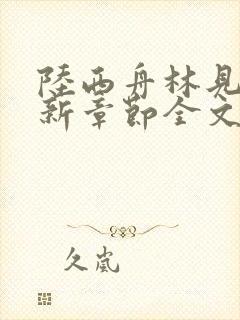 陸西舟林見
新章節全文
久嵐